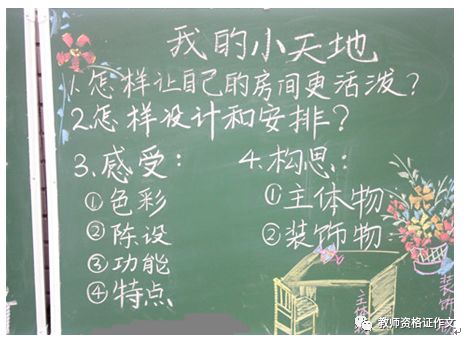 我的小天地
1.怎样让自己的房间更活泼?
2.怎样设计和安排?
3.感受:
①色彩
②陈设
③功能
④特点
4.构思:
①主体物
②装饰物
主体物
装饰物
教师资格证作文